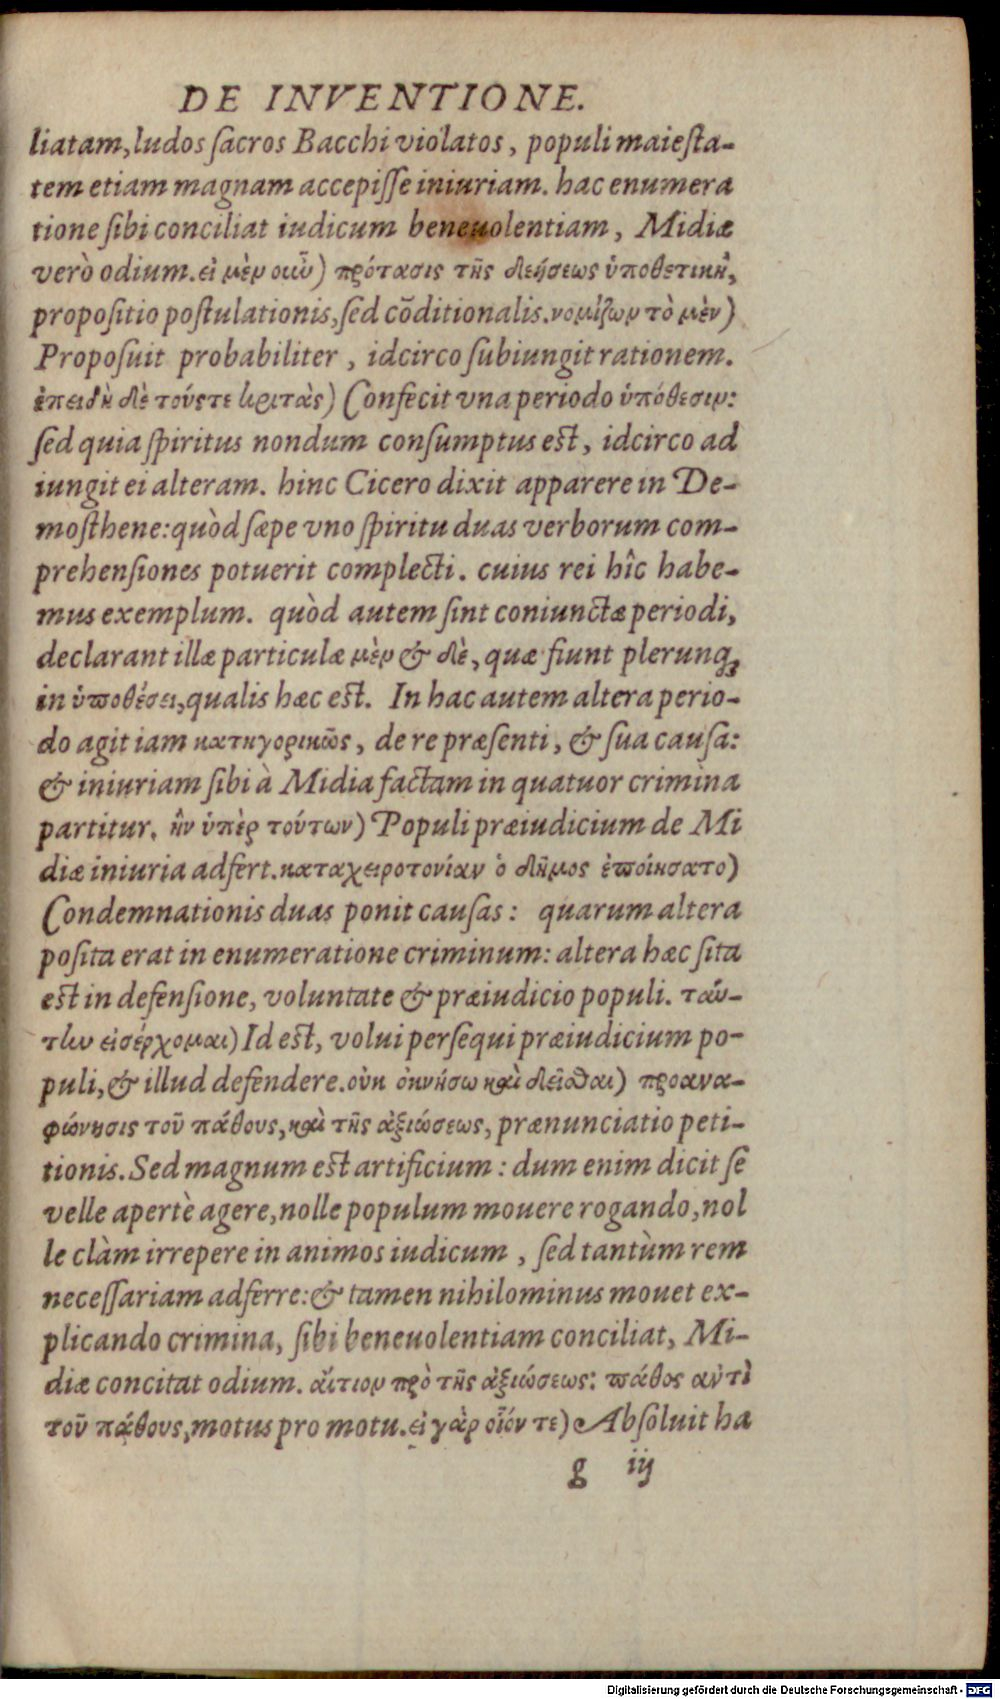 DE INVENTIONE.
liatam, ludos ſacros Bacchi violatos, populi maieſta-
tem etiam magnam accepiſſe iniuriam. hac enumera
tione ſibi conciliat iudicum beneuolentiam, Midiæ
verò odium. εἰ μὲν οὖν) πρότασις τῆς δεήσεως ὑποθετικὴ,
propoſitio poſtulationis, ſed cōditionalis. νομίζων τὸ μὲν)
Propoſuit probabiliter, idcirco ſubiungit rationem.
ἐπειδὴ δὲ τούςτε κριτὰς) Confecit vna periodo ὑπόθεσιν:
ſed quia ſpiritus nondum conſumptus eſt, idcirco ad
iungit ei alteram. hinc Cicero dixit apparere in De-
moſthene: quòd ſæpe vno ſpiritu duas verborum com-
prehenſiones potuerit complecti. cuius rei hîc habe-
mus exemplum. quòd autem ſint coniunctæ periodi,
declarant illæ particulæ μὲν & δὲ, quæ fiunt plerunq́;
in ὑποθέσει, qualis hæc eſt. In hac autem altera perio-
do agit iam κατηγορικῶς, de re præſenti, & ſua cauſa:
& iniuriam ſibi à Midia factam in quatuor crimina
partitur. ἣν ὑπὲρ τούτων) Populi præiudicium de Mi
diæ iniuria adfert. καταχειροτονίαν ὁ δῆμος ἐποιήσατο)
Condemnationis duas ponit cauſas: quarum altera
poſita erat in enumeratione criminum: altera hæc ſita
eſt in defenſione, voluntate & præiudicio populi. ταύ-
την εἰσέρχομαι) Id eſt, volui perſequi præiudicium po-
puli, & illud defendere. οὐκ ὀκνήσω καὶ δεῖσθαι) προανα-
φώνησις τοῦ πάθους, καὶ τῆς ἀξιώσεως, prænunciatio peti-
tionis. Sed magnum eſt artificium: dum enim dicit ſe
velle apertè agere, nolle populum mouere rogando, nol
le clàm irrepere in animos iudicum, ſed tantùm rem
neceſſariam adferre: & tamen nihilominus mouet ex-
plicando crimina, ſibi beneuolentiam conciliat, Mi-
diæ concitat odium. αἴτιον πρὸ τῆς ἀξιώσεως: πάθος αὐτὶ
τοῦ πάθους, motus pro motu. εἰ γὰρ οἷόν τε) Abſoluit ha
g iij
Digitalisierung gefördert durch die Deutsche Forschungsgemeinschaft - DFG